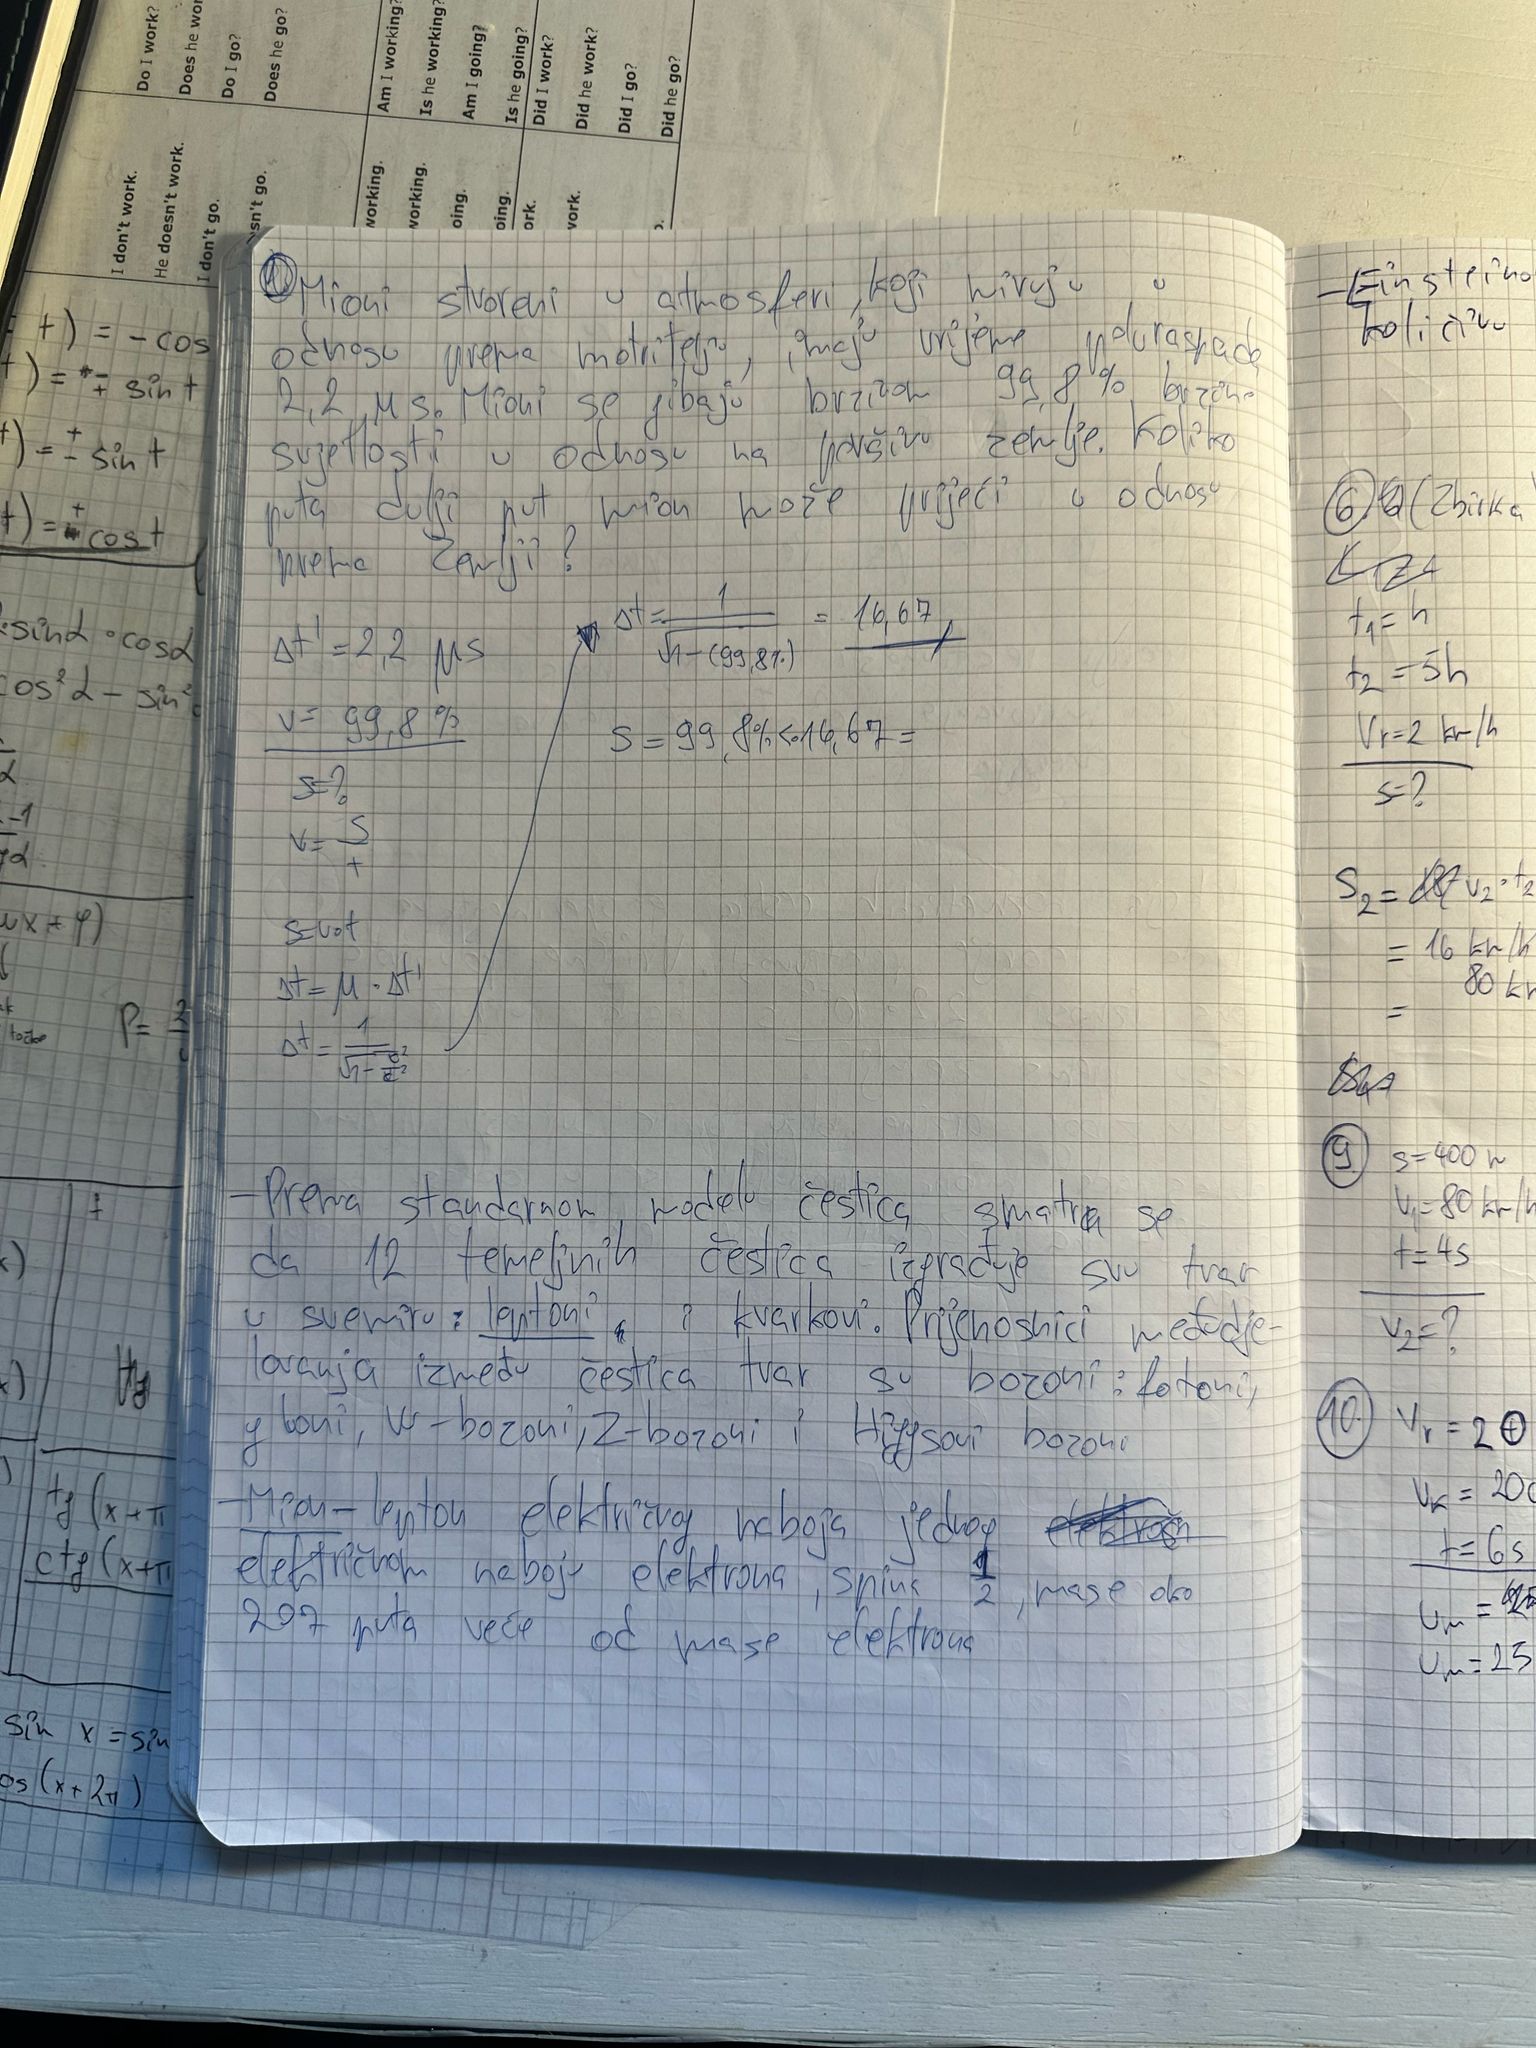 Do I work?
Does he wor
Do I go?
Does he go?
Am I working?
Is he working?
Am I going?
Is he going?
Did I work?
Did he work?
Did I go?
Did he go?
I don't work.
He doesn't work.
I don't go.
sn't go.
working.
working.
oing.
oing.
ork.
work.
t) = - cos
t) = ± sin t
t) = ± sin t
t) = ± cos t
sin α · cos α
cos² α - sin²
-1
ωx + φ)
točke
P =
tg
tg (x + π
ctg (x + π
sin x = sin
os (x + 2π)
1 Mioni stvoreni u atmosferi, koji miruju u
odnosu prema motritelju, imaju vrijeme poluraspada
2,2 μs. Mioni se gibaju brzinom 99,8 % brzin.
svjetlosti u odnosu na površinu zemlje. Koliko
puta dulji put mion može prijeći u odnosu
prema Zemlji?
Δt' = 2,2 μs
v = 99,8 %
s = ?
v = s/t
s = v·t
Δt = μ · Δt'
Δt = 1/√1-v²/c²
Δt = 1/√1-(99,8%) = 16,67
s = 99,8% c·16,67 =
- Prema standarnom modelu čestica smatra se
da 12 temeljnih čestica izgrađuje svu tvar
u svemiru: leptoni i kvarkovi. Prijenosnici međudje-
lovanja između čestica tvar su bozoni: fotoni,
gluoni, W-bozoni, Z-bozoni i Higgsovi bozoni
- Mion - lepton električnog naboja jednog
električnom naboju elektrona, spina 1/2, mase oko
207 puta veće od mase elektrona
- Einsteino
količinu
6. (Zbirka
t₁ = h
t₂ = 5h
Vr = 2 km/h
s = ?
S₂ = v₂ · t₂
= 16 km/h
80 km
=
9. s = 400 m
v₁ = 80 km/h
t = 4s
v₂ = ?
10. Vr = 20
vk = 200
t = 6s
vm =
vm = 25